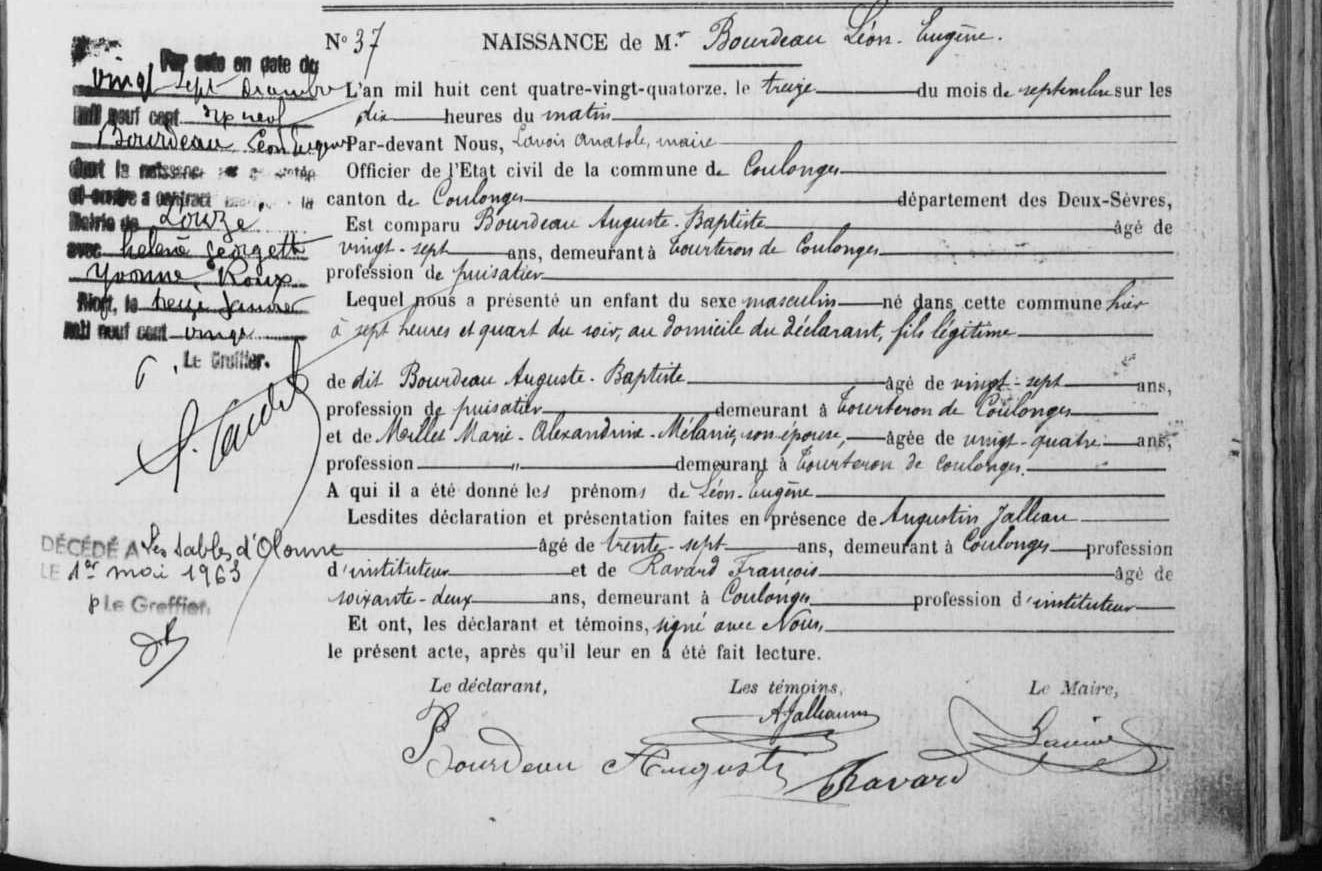 N° 37 NAISSANCE de M.r Bourdeau Léon-Eugène.
L'an mil huit cent quatre-vingt-quatorze, le treize du mois de septembre sur les
dix heures du matin
Par-devant Nous, Lavoix Anatole, maire
Officier de l'Etat civil de la commune de Coulonges
canton de Coulonges département des Deux-Sèvres,
Est comparu Bourdeau Auguste-Baptiste âgé de
vingt-sept ans, demeurant à Tourteron de Coulonges
profession de puisatier
Lequel nous a présenté un enfant du sexe masculin né dans cette commune hier
à sept heures et quart du soir, au domicile du déclarant, fils légitime
de dit Bourdeau Auguste-Baptiste âgé de vingt-sept ans,
profession de puisatier demeurant à Tourteron de Coulonges
et de Marie-Alexandrine-Mélanie, son épouse, âgée de vingt-quatre ans,
profession " demeurant à Tourteron de Coulonges.
A qui il a été donné les prénoms de Léon-Eugène
Lesdites déclaration et présentation faites en présence de Augustin Jalleau
âgé de trente-sept ans, demeurant à Coulonges profession
d'instituteur et de Ravard François âgé de
soixante-deux ans, demeurant à Coulonges profession d'instituteur
Et ont, les déclarant et témoins, signé avec Nous,
le présent acte, après qu'il leur en a été fait lecture.
Le déclarant, Les témoins, Le Maire,
AJalleau
Bourdeau Auguste Ravard
Par acte en date du
vingt sept Décembre
mil neuf cent dix neuf
Bourdeau Léon Eugène
dont la naissance
ci-contre a contracté la
Mairie de
avec Hélène Georgette
Yvonne Roux
Niort, le treize Janvier
mil neuf cent vingt
Le Greffier.
DÉCÉDÉ A Les Sables d'Olonne
LE 1er mai 1963
p Le Greffier.